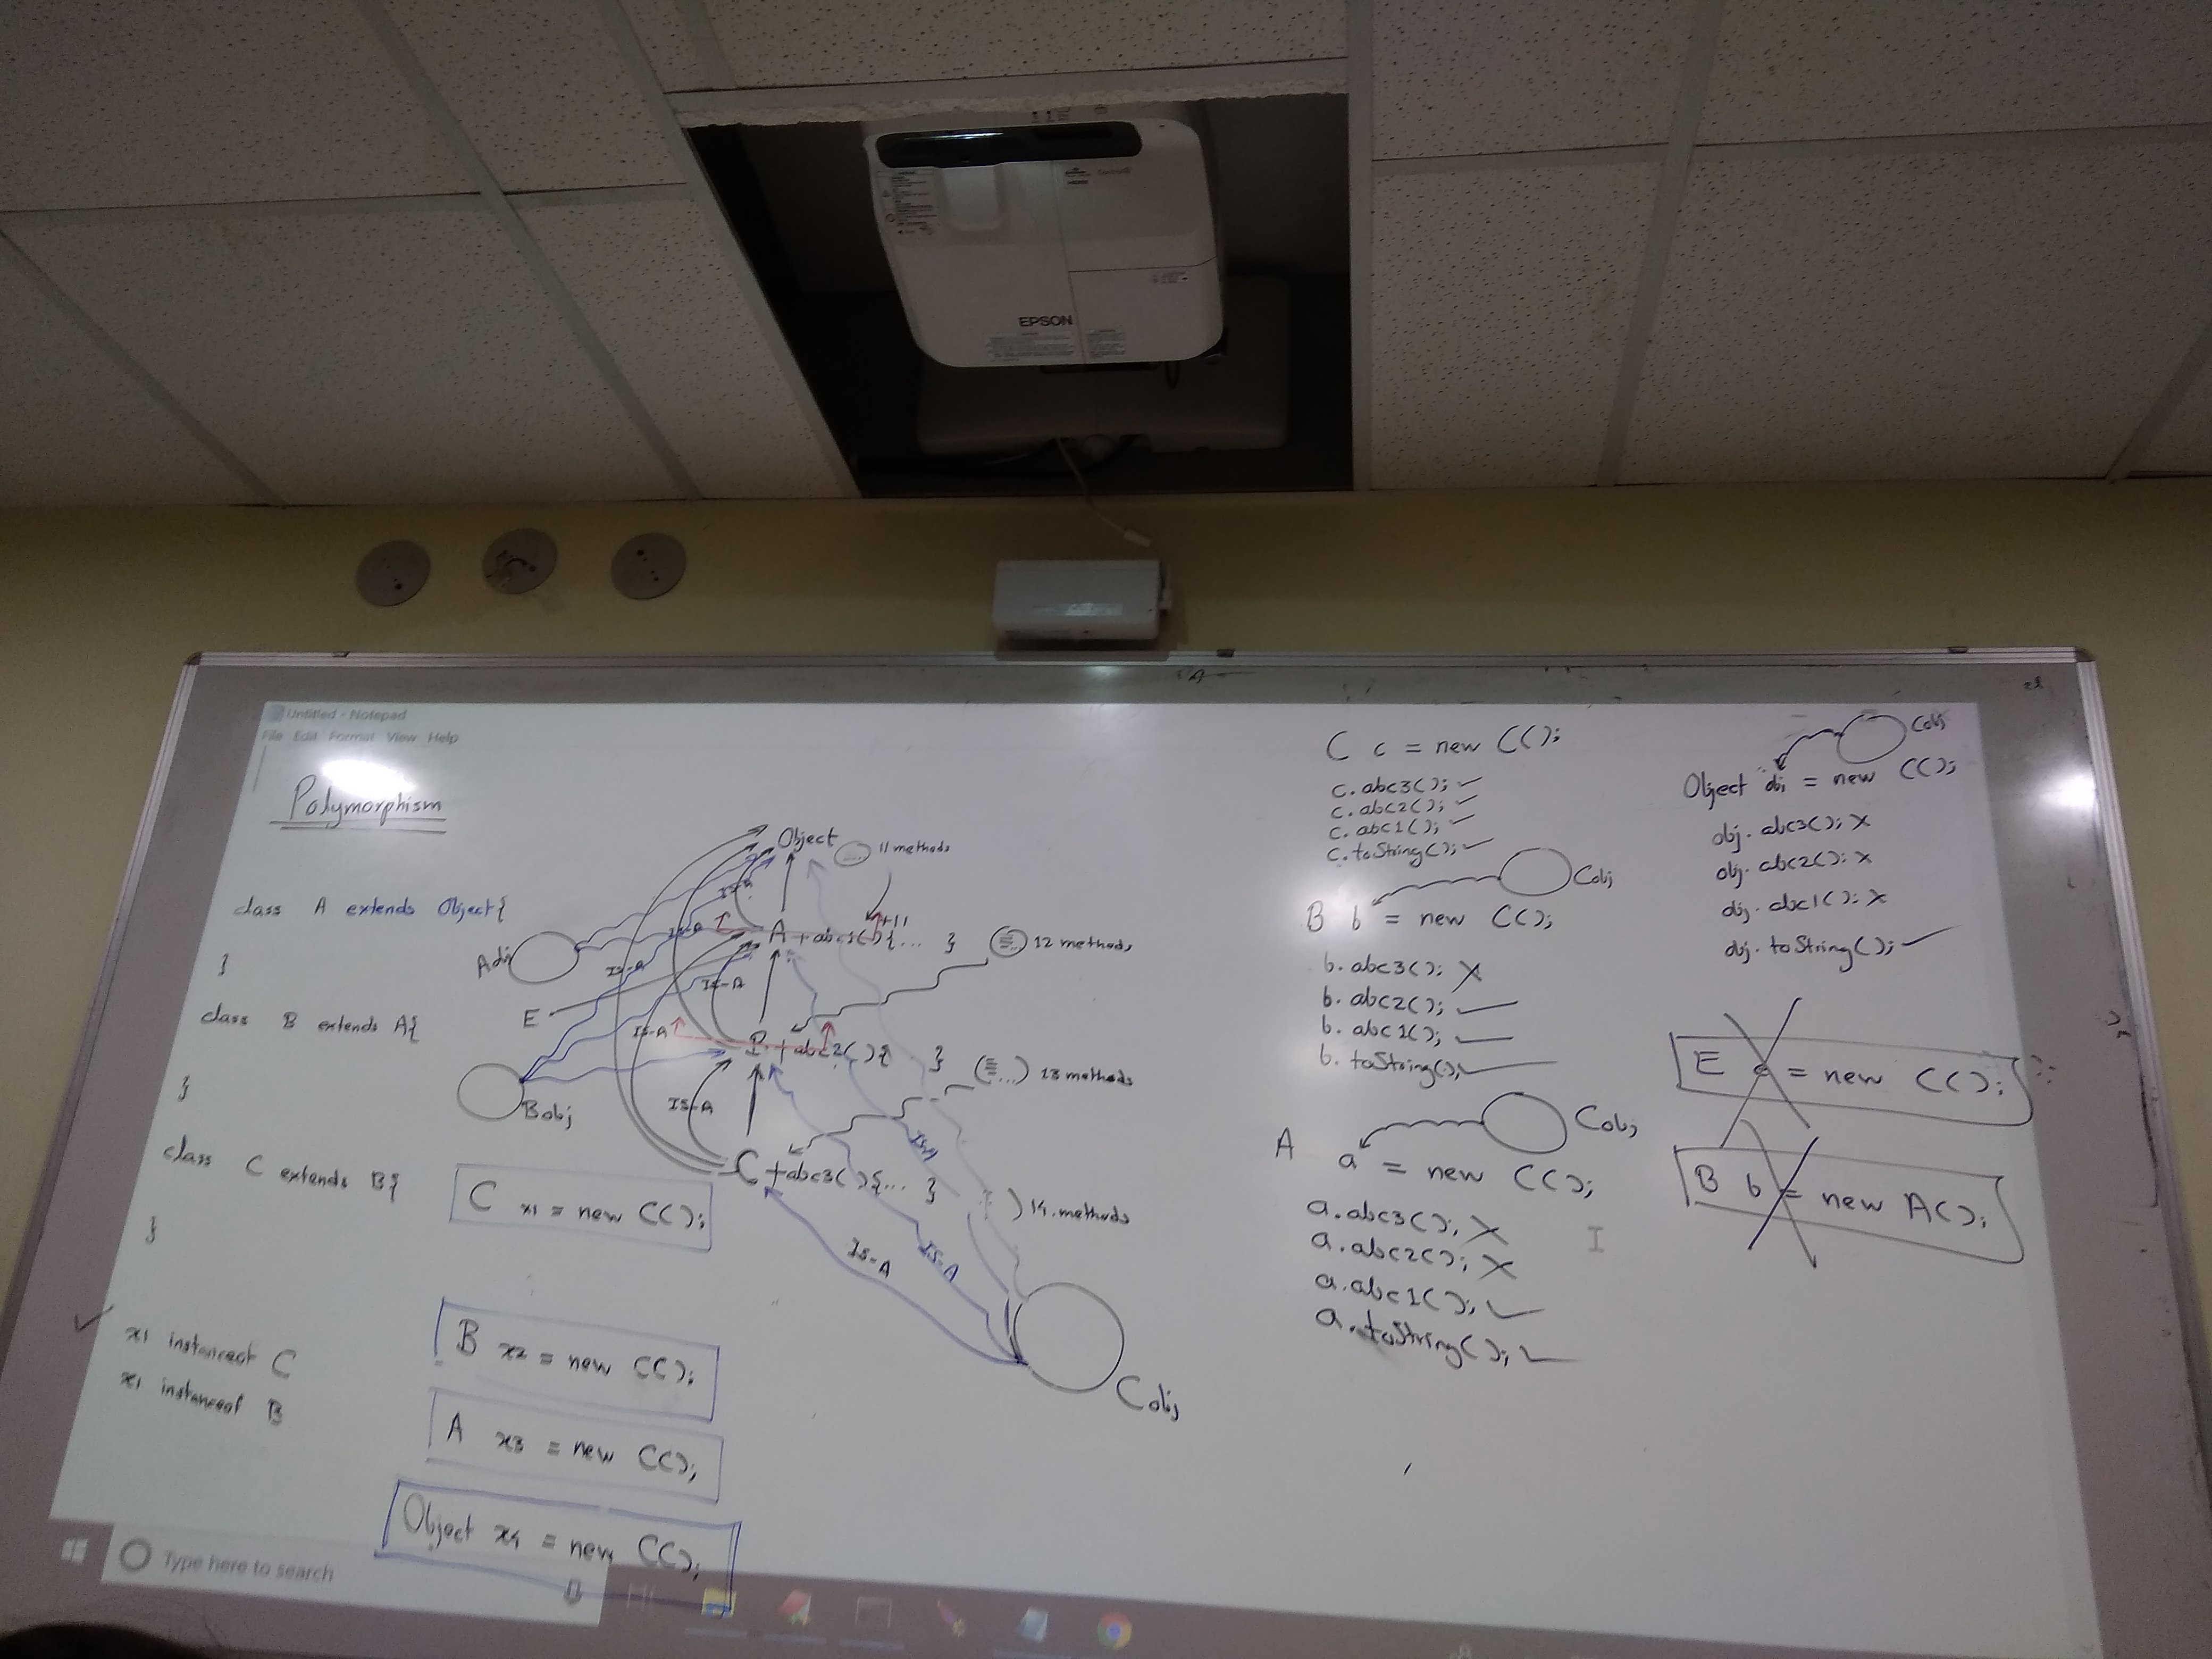 EPSON
Untitled - Notepad
File Edit Format View Help
Polymorphism
class A extends Object{
}
class B extends A{
}
class C extends B{
}
x1 instanceof C
x1 instanceof B
C x1 = new C();
B x2 = new C();
A x3 = new C();
Object x4 = new C();
Object
11 methods
IS-A
+11
A +abc1(){... }
12 methods
IS-A
IS-A
Aobj
IS-A
E
IS-A
B +abc2(){ }
13 methods
Bobj
IS-A
C +abc3(){... }
14 methods
IS-A
IS-A
IS-A
Cobj
C c = new C();
c.abc3();
c.abc2();
c.abc1();
c.toString();
Cobj
B b = new C();
b.abc3(); X
b.abc2();
b.abc1();
b.toString();
Cobj
A a = new C();
a.abc3(); X
a.abc2(); X
a.abc1();
a.toString();
Cobj
Object obj = new C();
obj.abc3(); X
obj.abc2(); X
obj.abc1(); X
obj.toString();
E e = new C();
B b = new A();
Type here to search